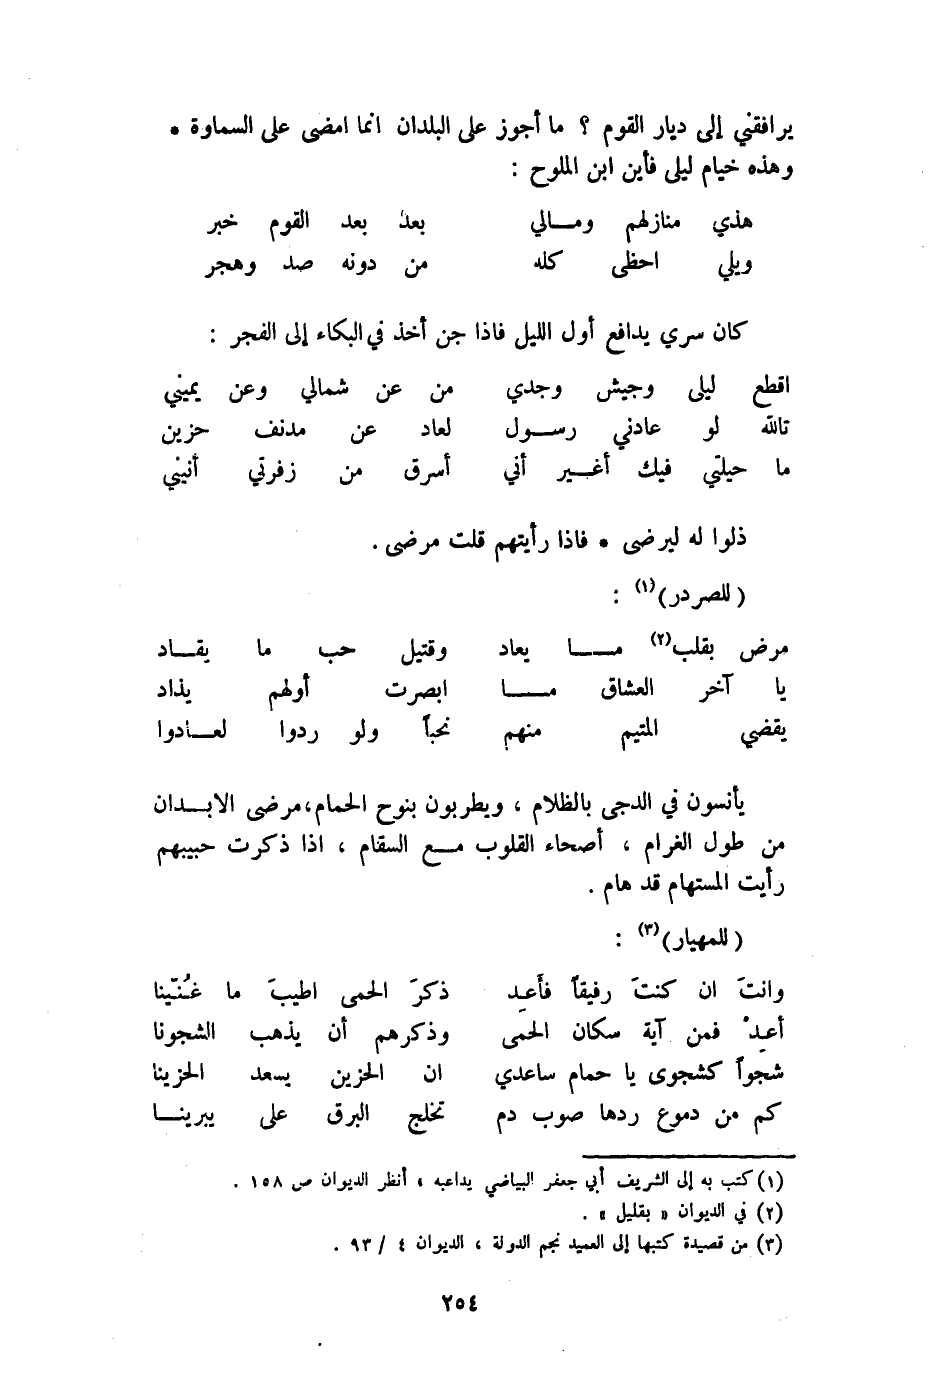 يرافقني إلى ديار القوم ؟ ما أجوز على البلدان انما امضى على السماوة •
وهذه خيام ليلى فأين ابن الملوح :
هذي منازلهم ومـالي بعدَ بعد القوم خبر
ويلي احظى كله من دونه صد وهجر
كان سري يدافع أول الليل فاذا جن أخذ في البكاء إلى الفجر :
اقطع ليلى وجيش وجدي من عن شمالي وعن يميني
تالله لو عادني رسـول لعاد عن مدنف حزين
ما حيلتي فيك أغـير أني أسرق من زفرتي أنيني
ذلوا له ليرضى • فاذا رأيتهم قلت مرضى .
( للصردر )(١) :
مرض بقلب(٢) مـا يعاد وقتيل حب ما يقـاد
يا آخر العشاق مـا ابصرت أولهم يذاد
يقضي المتيم منهم نحباً ولو ردوا لعـادوا
يأنسون في الدجى بالظلام ، ويطربون بنوح الحمام،مرضى الابـدان
من طول الغرام ، أصحاء القلوب مـع السقام ، اذا ذكرت حبيبهم
رأيت المستهام قد هام .
( للمهيار )(٣) :
وانتَ ان كنتَ رفيقاً فأَعِد ذكرَ الحمى اطيبَ ما غُنّينا
أعِدْ فمن آية سكان الحمى وذكرهم أن يذهب الشجونا
شجواً كشجوى يا حمام ساعدي ان الحزين يسعد الحزينا
كم من دموع ردها صوب دم تخلج البرق على يبرينـا
(١) كتب به إلى الشريف أبي جعفر البياضي يداعبه ، أنظر الديوان ص ١٥٨ .
(٢) في الديوان « بقليل » .
(٣) من قصيدة كتبها إلى العميد نجم الدولة ، الديوان ٤ / ٩٣ .
٢٥٤